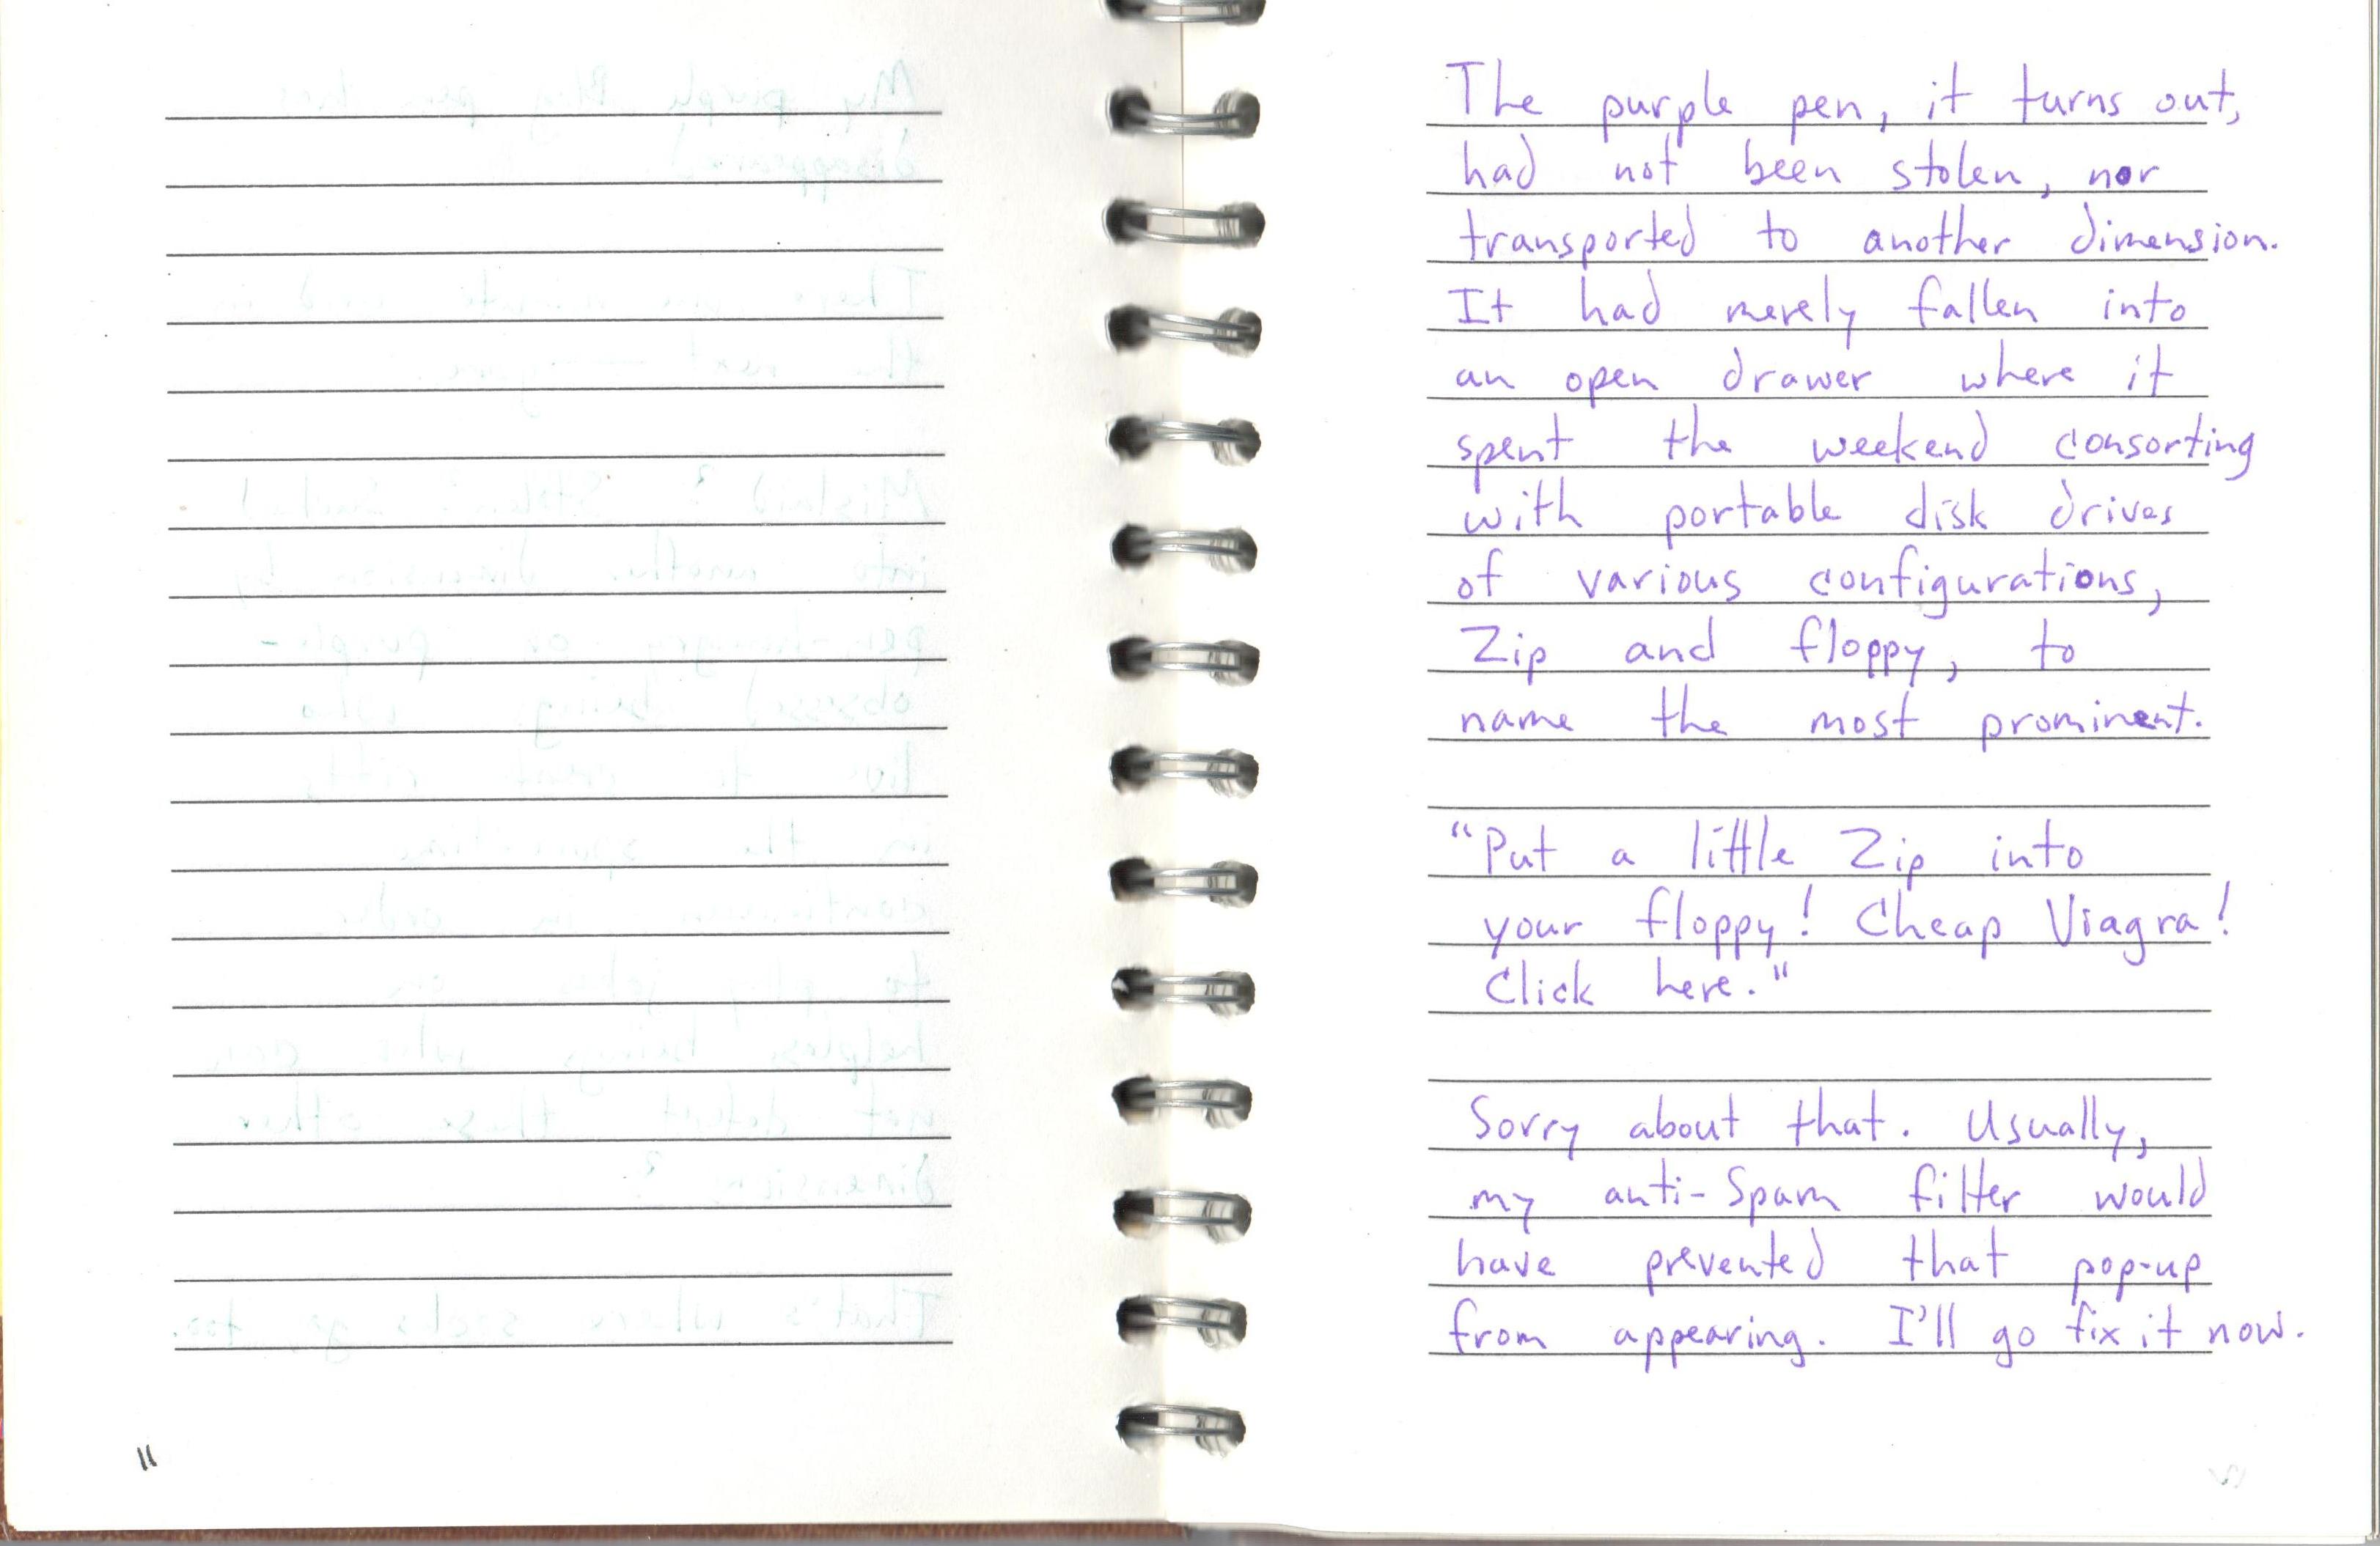 11
The purple pen, it turns out,
had not been stolen, nor
transported to another dimension.
It had merely fallen into
an open drawer where it
spent the weekend consorting
with portable disk drives
of various configurations,
Zip and floppy, to
name the most prominent.
"Put a little Zip into
your floppy! Cheap Viagra!
Click here."
Sorry about that. Usually,
my anti-Spam filter would
have prevented that pop-up
from appearing. I'll go fix it now.